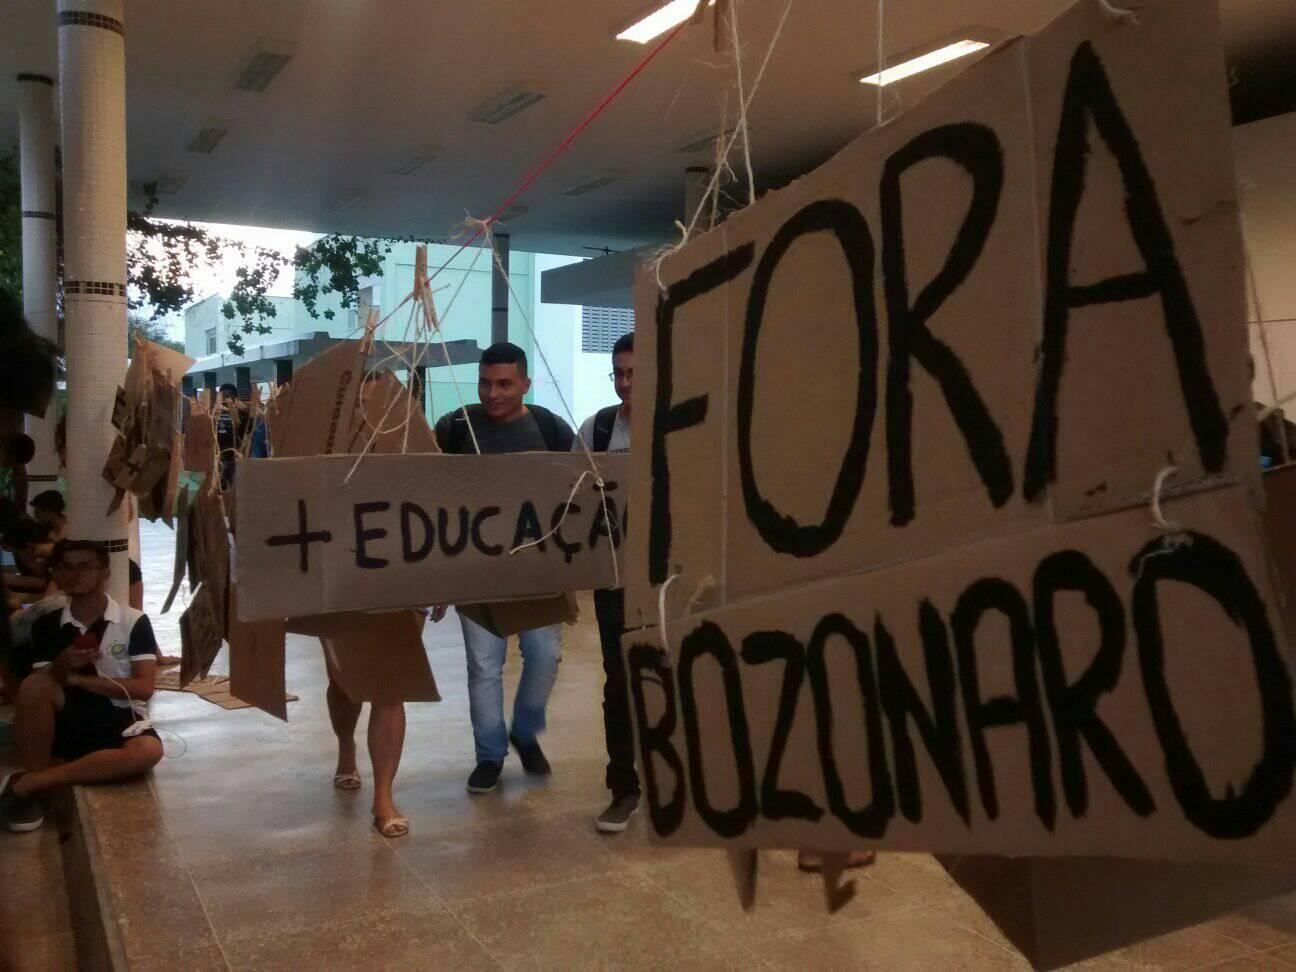 + EDUCAÇÃO
FORA
BOZONARO